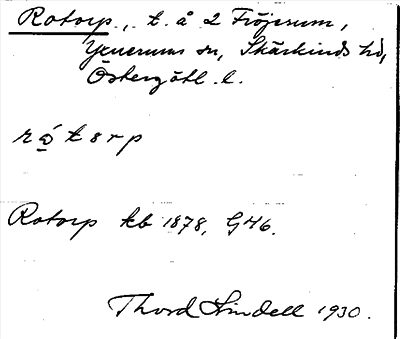 Rotorp, t. å 2 Fröjerum,
Yxnerums sn, Skärkinds hd,
Östergötl. l.
rót orp
Rotorp kb 1878, GH6.
Thord Lindell 1930.